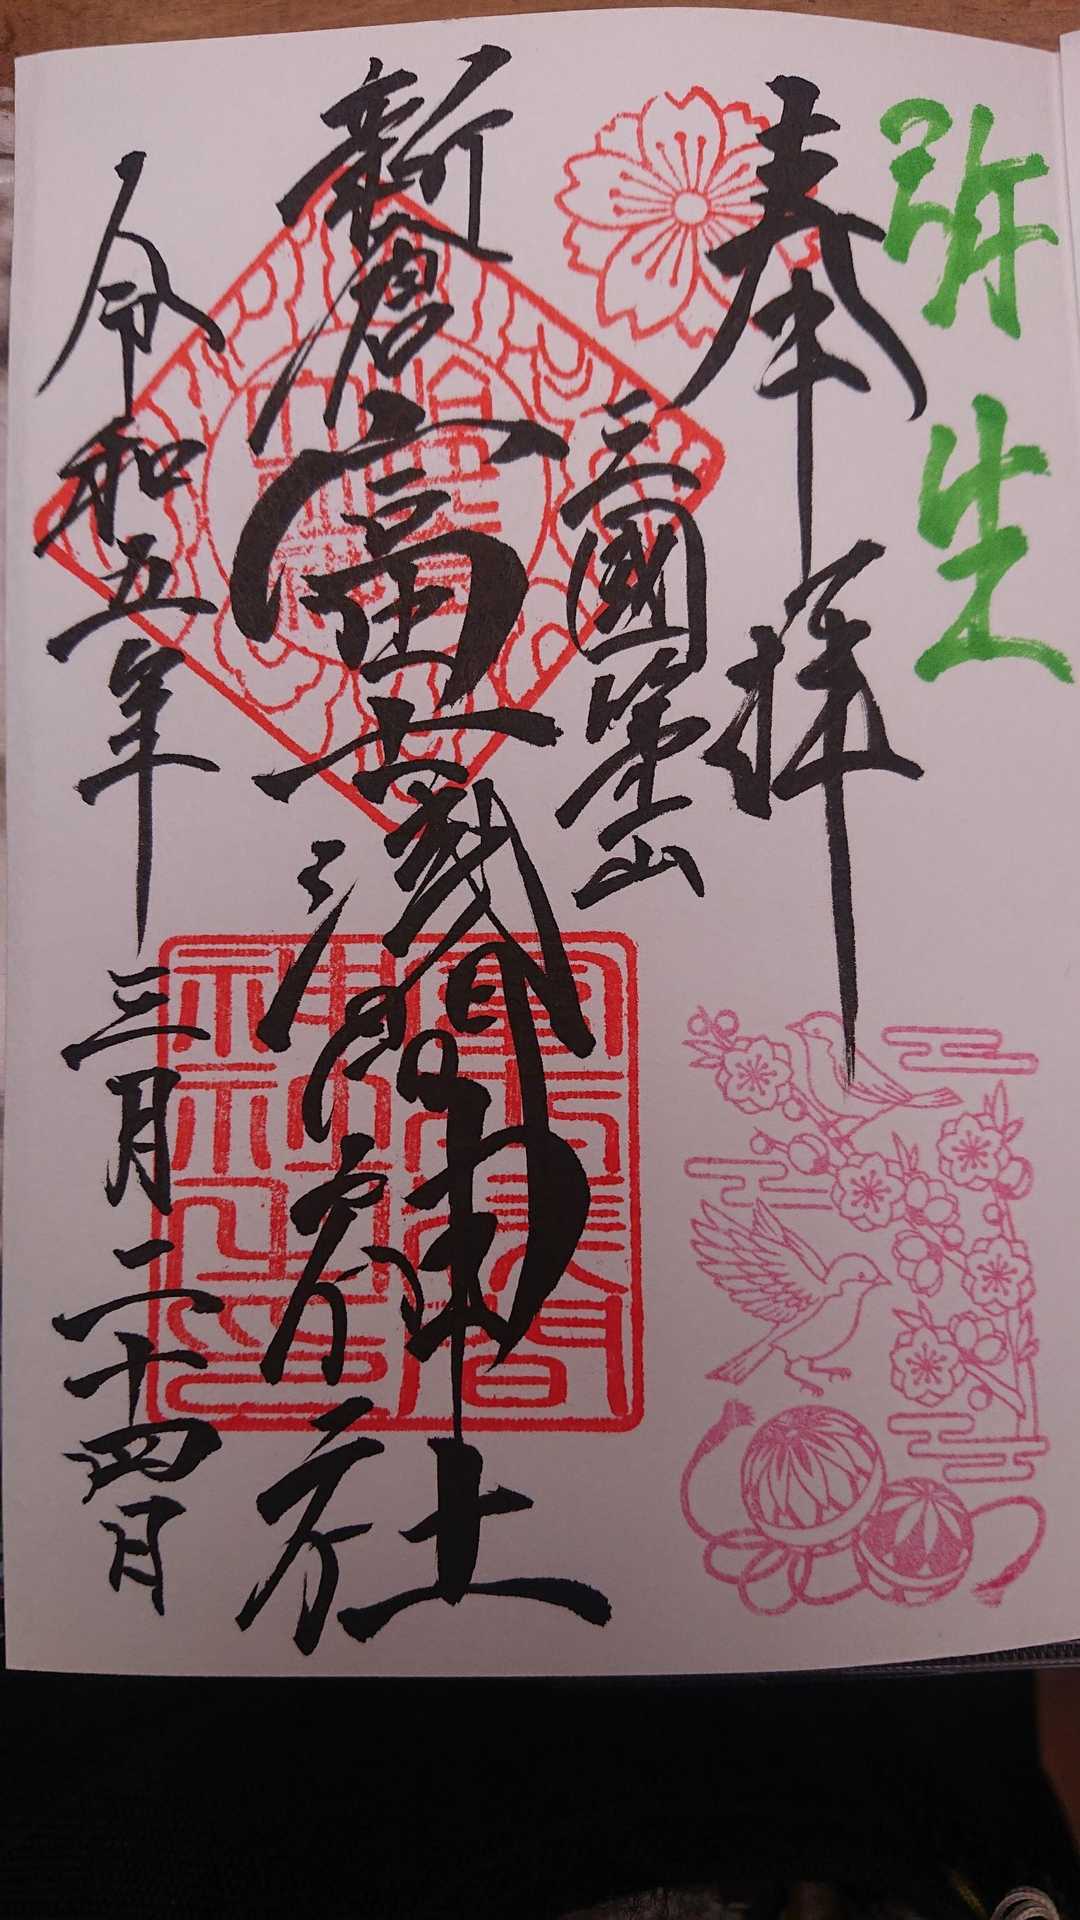 弥生
奉拝
三國第一山
新倉富士浅間神社
令和五年三月二十四日